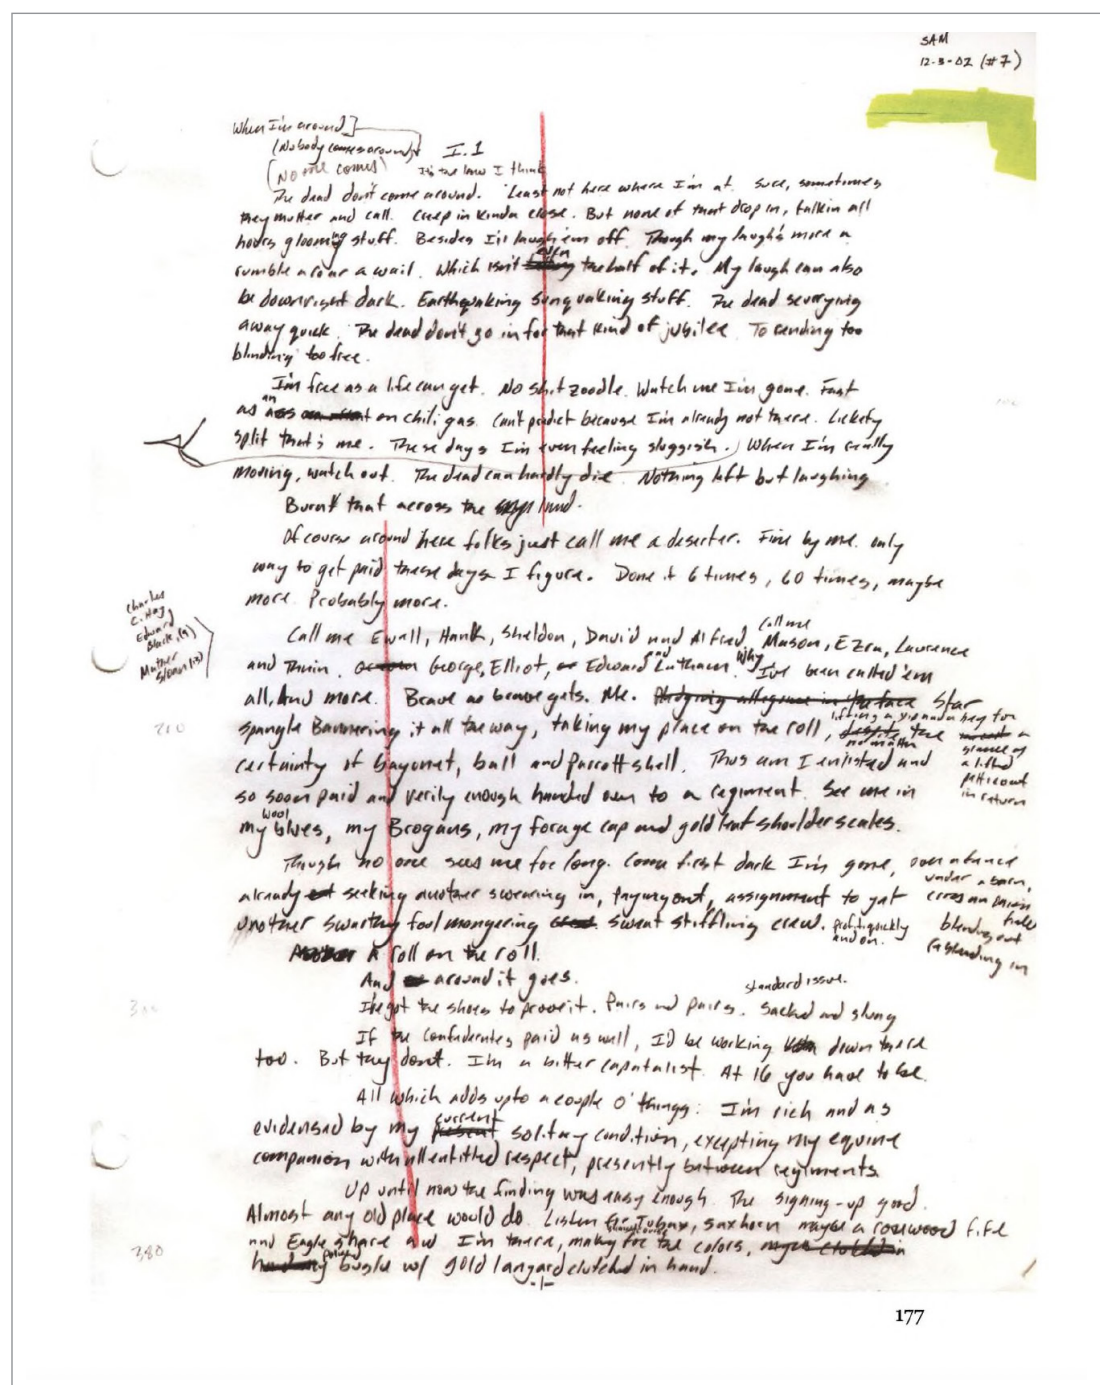 SAM
12-3-02 (#7)
When I'm around]
(Nobody comes around)
I.1
(No one comes)
It's the law I think
The dead don't come around. 'Least not here where I'm at. Sure, sometimes
they mutter and call. Creep in kinda close. But none of that drop in, talkin all
hours glooming stuff. Besides I'll laugh 'em off. Though my laugh's more a
rumble a roar a wail. Which isn't even the half of it. My laugh can also
be downright dark. Earthquaking Sunquaking stuff. The dead scurrying
away quick. The dead don't go in for that kind of jubilee. To rending too
blinding too free.
I'm free as a life can get. No shit zoodle. Watch me I'm gone. Fast
as an ass on chili gas. Can't predict because I'm already not there. Lickety
split that's me. These days I'm even feeling sluggish. When I'm really
moving, watch out. The dead can hardly die. Nothing left but laughing
Burnt that across the land.
Of course around here folks just call me a deserter. Fine by me. only
way to get paid these days I figure. Done it 6 times, 60 times, maybe
more. Probably more.
Charles
C. Hay
Edward
Black (9)
Mather
Sloan (13)
call me
Call me Ewall, Hank, Sheldon, David and Alfred, Mason, Ezra, Lawrence
and Thuin. George, Elliot, Edward and Lutham. Why I've been called 'em
all, And more. Brave as brave gets. Me. Star
spangle Bannering it all the way, taking my place on the roll, no matter the
certainty of bayonet, ball and Parrott shell. Thus am I enlisted and
lifting a yip and a hey for
a
glance of
a lifted
petticoat
in return
210
so soon paid and verily enough handed over to a regiment. See me in
my wool blues, my Brogans, my forage cap and gold leaf shoulder scales.
Though no one sees me for long. Come first dark I'm gone,
over a fence
under a barn,
cross an onion
field
blending out
reblending in
already seeking another swearing in, paying out, assignment to yet
another swarthy foul mongering sweat stiffling crew. profit quickly
and on.
A roll on the roll.
And around it goes.
standard issue.
300
I've got the shoes to prove it. Pairs and pairs. Sacked and slung
If the Confederates paid as well, I'd be working down there
too. But they don't. I'm a bitter capatalist. At 16 you have to be.
All which adds upto a couple o' things: I'm rich and as
evidensed by my current solitary condition, excepting my equine
companion with all entitled respect, presently between regiments.
Up until now the finding was easy enough. The signing-up good.
Almost any old place would do. Listen for Tubax, saxhorn maybe a rosewood fife
and Eagle snare and I'm there, making for the colors,
380
bugle w/ gold lanyard clutched in hand.
-1-
177